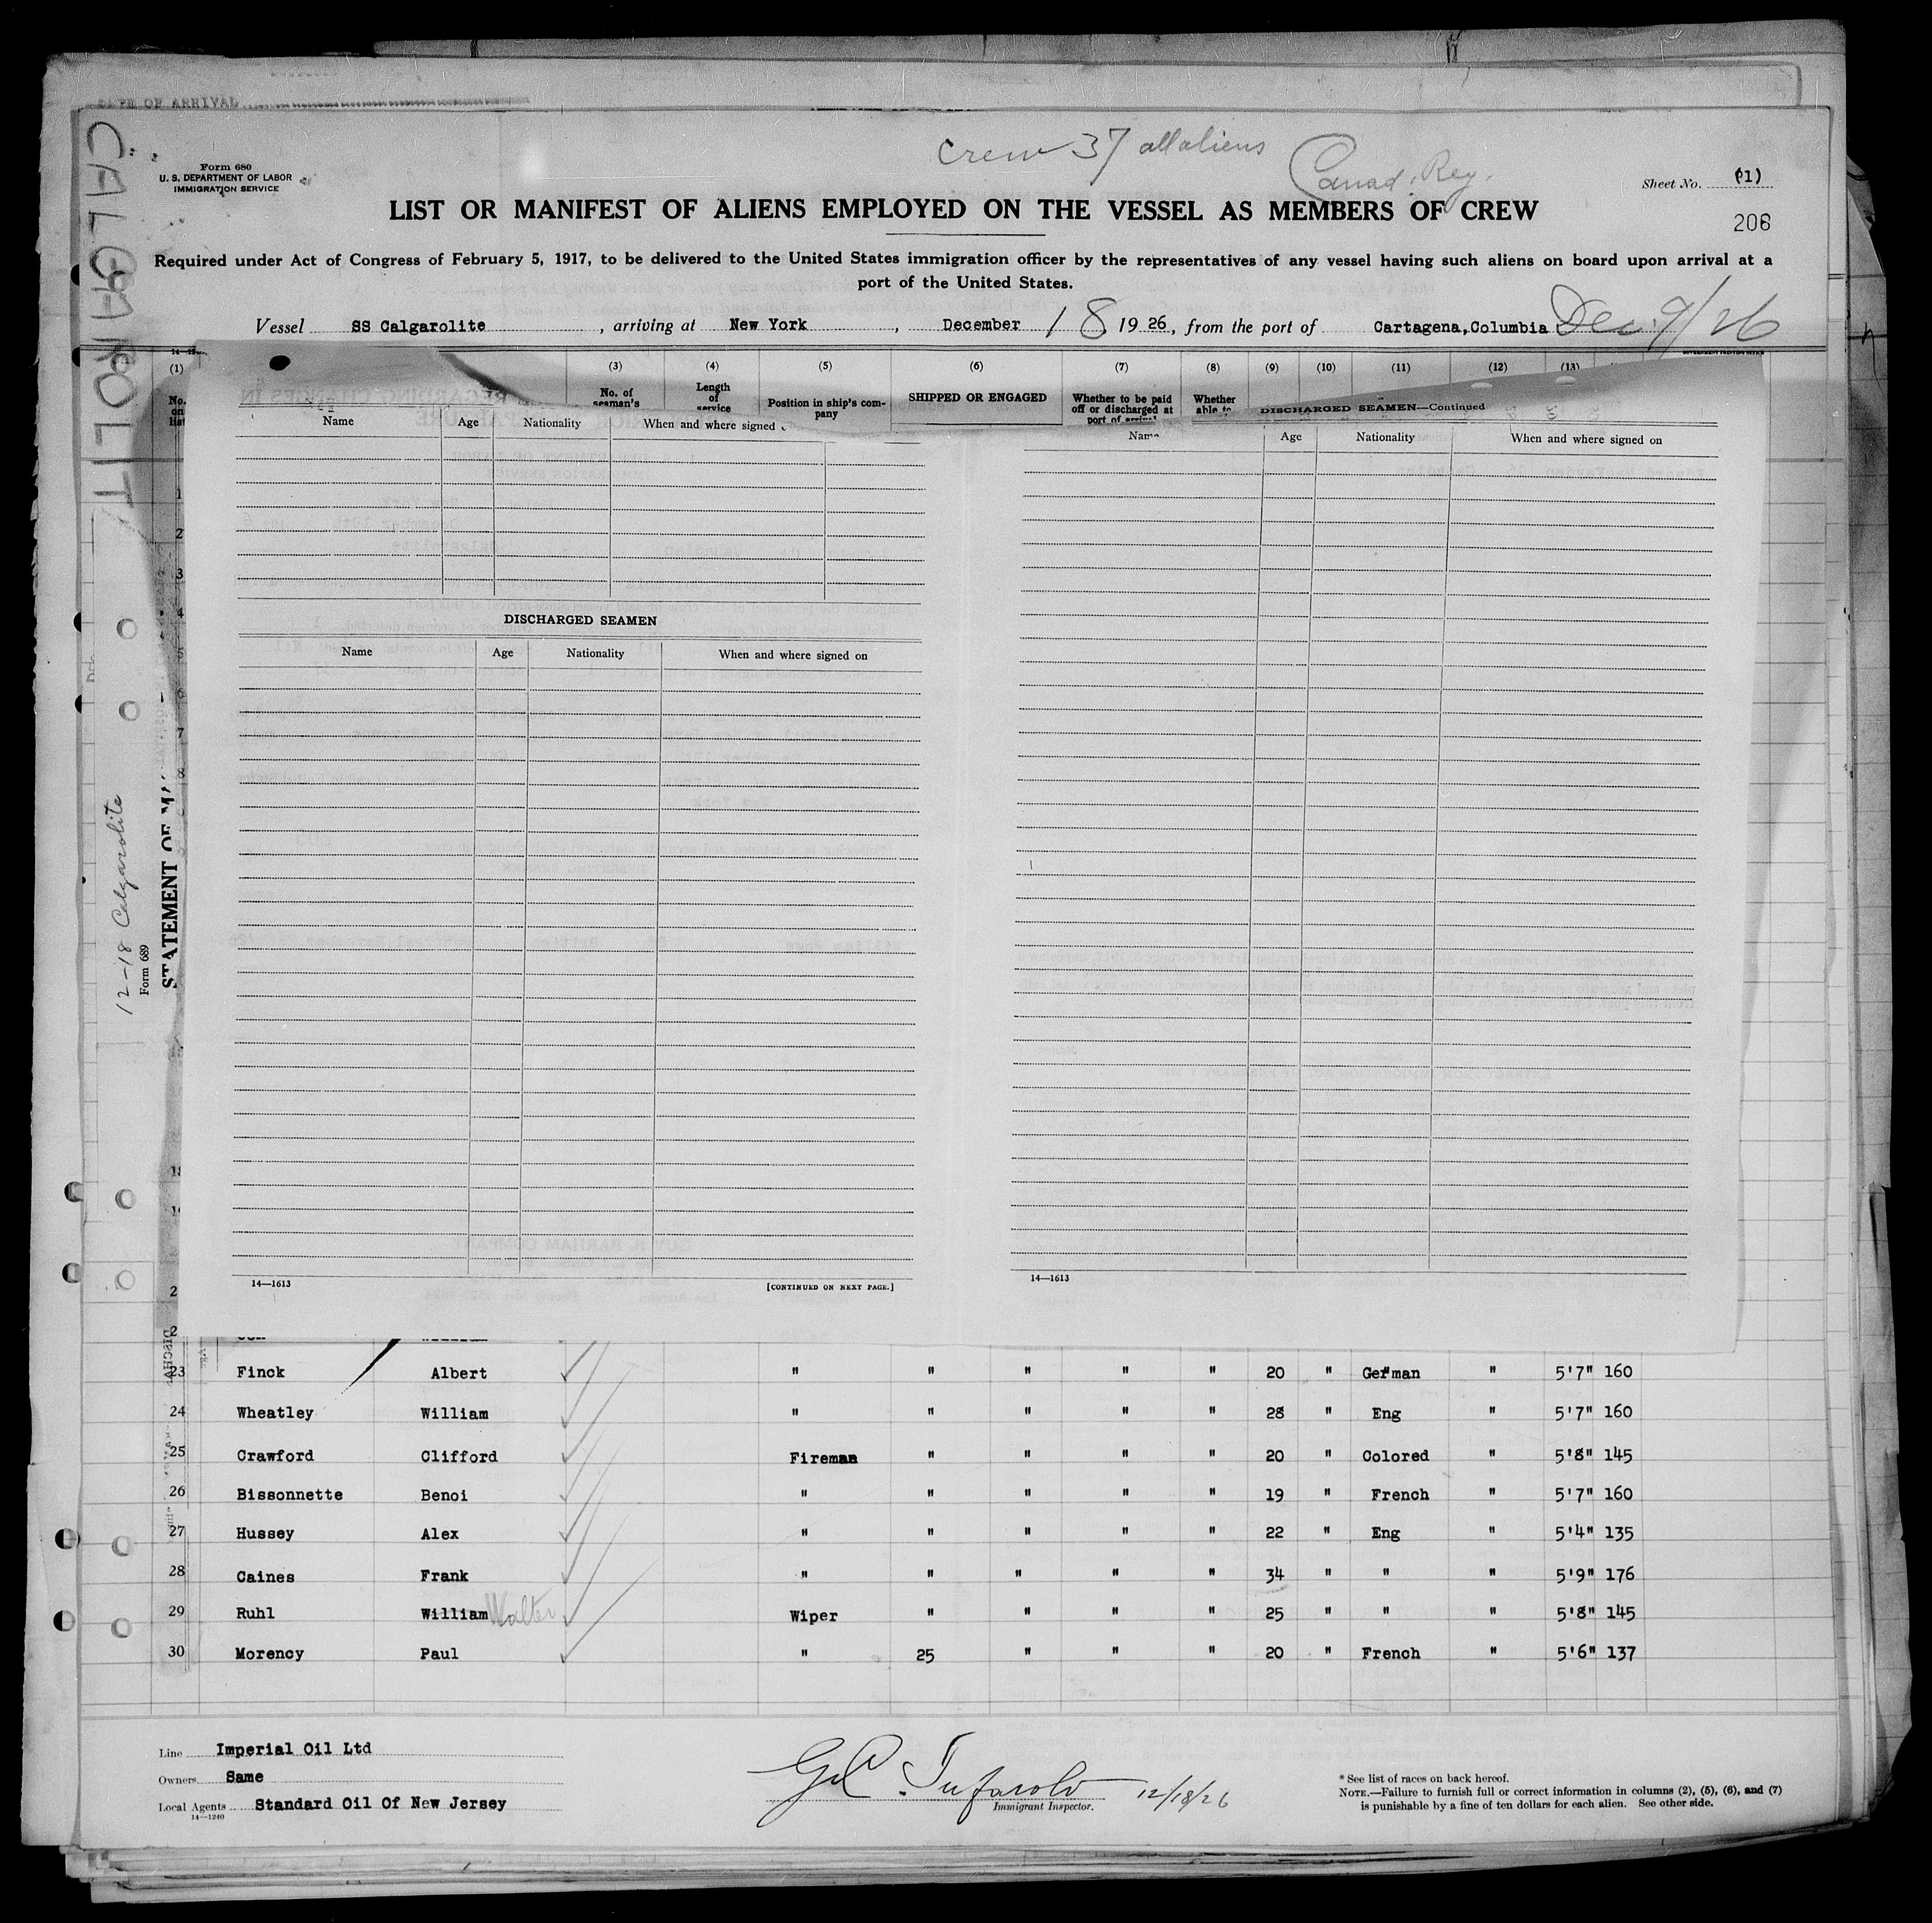 DATE OF ARRIVAL
CALGAROLITE
crew 37 all aliens
Canad. Reg.
Form 680
U. S. DEPARTMENT OF LABOR
IMMIGRATION SERVICE
Sheet No. (1)
LIST OR MANIFEST OF ALIENS EMPLOYED ON THE VESSEL AS MEMBERS OF CREW
206
Required under Act of Congress of February 5, 1917, to be delivered to the United States immigration officer by the representatives of any vessel having such aliens on board upon arrival at a
port of the United States.
Vessel SS Calgarolite, arriving at New York, December 18, 1926, from the port of Cartagena,Columbia Dec 9/26
(1) (3) (4) (5) (6) (7) (8) (9) (10) (11) (12) (13)
No. on list
No. of seaman's
Length of service
Position in ship's company
SHIPPED OR ENGAGED
Whether to be paid off or discharged at port of arrival
Whether able to
DISCHARGED SEAMEN—Continued
Name Age Nationality When and where signed
Name Age Nationality When and where signed on
1
2
3
4
DISCHARGED SEAMEN
Name Age Nationality When and where signed on
5
6
7
8
12-18 Calgarolite
Form 689
STATEMENT OF
14—1613 [CONTINUED ON NEXT PAGE.] 14—1613
23 Finck Albert " " " " " 20 " German " 5'7" 160
24 Wheatley William " " " " " 28 " Eng " 5'7" 160
25 Crawford Clifford Fireman " " " " 20 " Colored " 5'8" 145
26 Bissonnette Benoi " " " " " 19 " French " 5'7" 160
27 Hussey Alex " " " " " 22 " Eng " 5'4" 135
28 Caines Frank " " " " " 34 " " " 5'9" 176
29 Ruhl William Walter Wiper " " " " 25 " " " 5'8" 145
30 Morency Paul " 25 " " " 20 " French " 5'6" 137
Line Imperial Oil Ltd
Owners Same
Local Agents Standard Oil Of New Jersey
14—1240
12/18/26
Immigrant Inspector.
* See list of races on back hereof.
NOTE.—Failure to furnish full or correct information in columns (2), (5), (6), and (7)
is punishable by a fine of ten dollars for each alien. See other side.